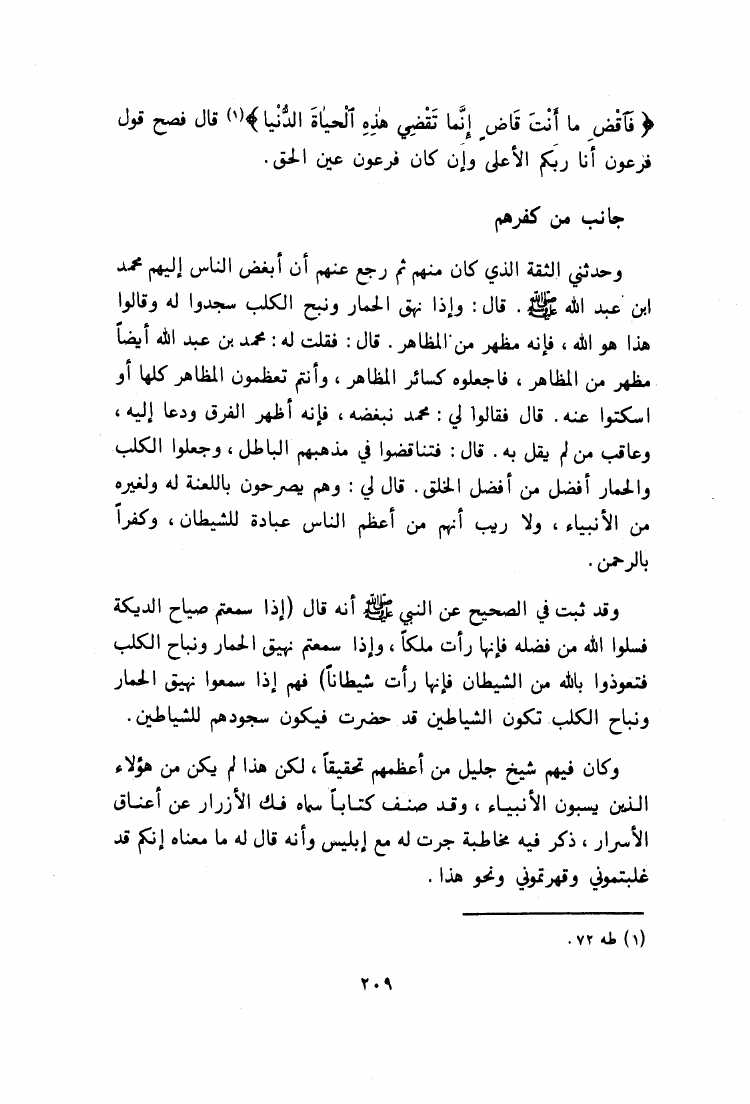 ﴿ فَٱقْضِ ما أَنْتَ قَاضٍ إِنَّما تَقْضِي هٰذِهِ ٱلْحيٰاةَ الدُّنْيا ﴾(١) قال فصح قول
فرعون أنا ربكم الأعلى وإن كان فرعون عين الحق .
جانب من كفرهم
وحدثني الثقة الذي كان منهم ثم رجع عنهم أن أبغض الناس إليهم محمد
ابن عبد الله ﷺ . قال : وإذا نهق الحمار ونبح الكلب سجدوا له وقالوا
هذا هو الله ، فإنه مظهر من المظاهر . قال : فقلت له : محمد بن عبد الله أيضاً
مظهر من المظاهر ، فاجعلوه كسائر المظاهر ، وأنتم تعظمون المظاهر كلها أو
اسكتوا عنه . قال فقالوا لي : محمد نبغضه ، فإنه أظهر الفرق ودعا إليه ،
وعاقب من لم يقل به . قال : فتناقضوا في مذهبهم الباطل ، وجعلوا الكلب
والحمار أفضل من أفضل الخلق . قال لي : وهم يصرحون باللعنة له ولغيره
من الأنبياء ، ولا ريب أنهم من أعظم الناس عبادة للشيطان ، وكفراً
بالرحمن .
وقد ثبت في الصحيح عن النبي ﷺ أنه قال (إذا سمعتم صياح الديكة
فسلوا الله من فضله فإنها رأت ملكاً ، وإذا سمعتم نهيق الحمار ونباح الكلب
فتعوذوا بالله من الشيطان فإنها رأت شيطاناً) فهم إذا سمعوا نهيق الحمار
ونباح الكلب تكون الشياطين قد حضرت فيكون سجودهم للشياطين .
وكان فيهم شيخ جليل من أعظمهم تحقيقاً ، لكن هذا لم يكن من هؤلاء
الذين يسبون الأنبياء ، وقد صنف كتاباً سماه فك الأزرار عن أعناق
الأسرار ، ذكر فيه مخاطبة جرت له مع إبليس وأنه قال له ما معناه إنكم قد
غلبتموني وقهرتموني ونحو هذا .
(١) طه ٧٢ .
٢٠٩